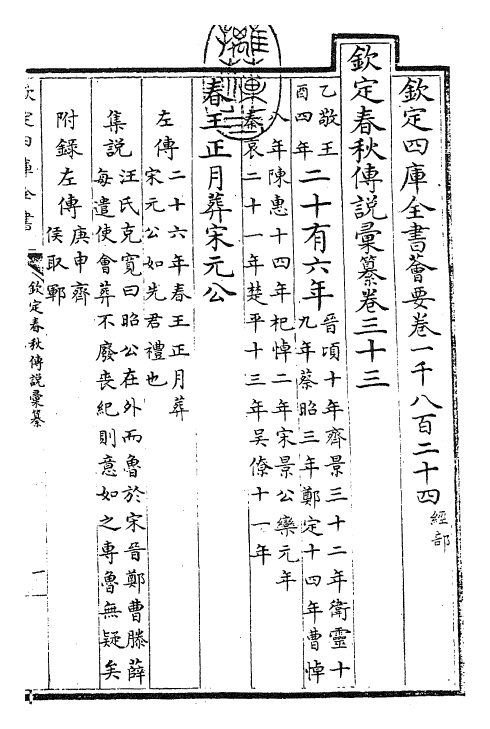 欽定四庫全書薈要卷一千八百二十四 經部
欽定春秋傳說彙纂卷三十三
乙敬王
酉四年
二十有六年
晉頃十年齊景三十二年衛靈十
九年蔡昭三年鄭定十四年曹悼
八年陳惠十四年杞悼二年宋景公欒元年
秦哀二十一年楚平十三年吳僚十一年
春王正月葬宋元公
左傳
二十六年春王正月葬
宋元公如先君禮也
集說
汪氏克寬曰昭公在外而魯於宋晉鄭曹滕薛
每遣使會葬不廢喪紀則意如之專魯無疑矣
附錄左傳
庚申齊
侯取鄆
欽定四庫全書
欽定春秋傳說彙纂
一